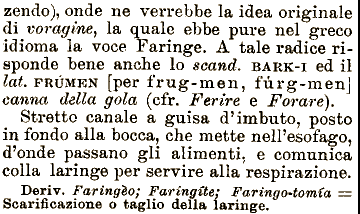 zendo), onde ne verrebbe la idea originale
di voragine, la quale ebbe pure nel greco
idioma la voce Faringe. A tale radice ri-
sponde bene anche lo scand. BARK-I ed il
lat. FRÚMEN [per frug-men, fúrg-men]
canna della gola (cfr. Ferire e Forare).
Stretto canale a guisa d'imbuto, posto
in fondo alla bocca, che mette nell'esofago,
d'onde passano gli alimenti, e comunica
colla laringe per servire alla respirazione.
Deriv. Faringèo; Faringíte; Faringo-tomía =
Scarificazione o taglio della laringe.